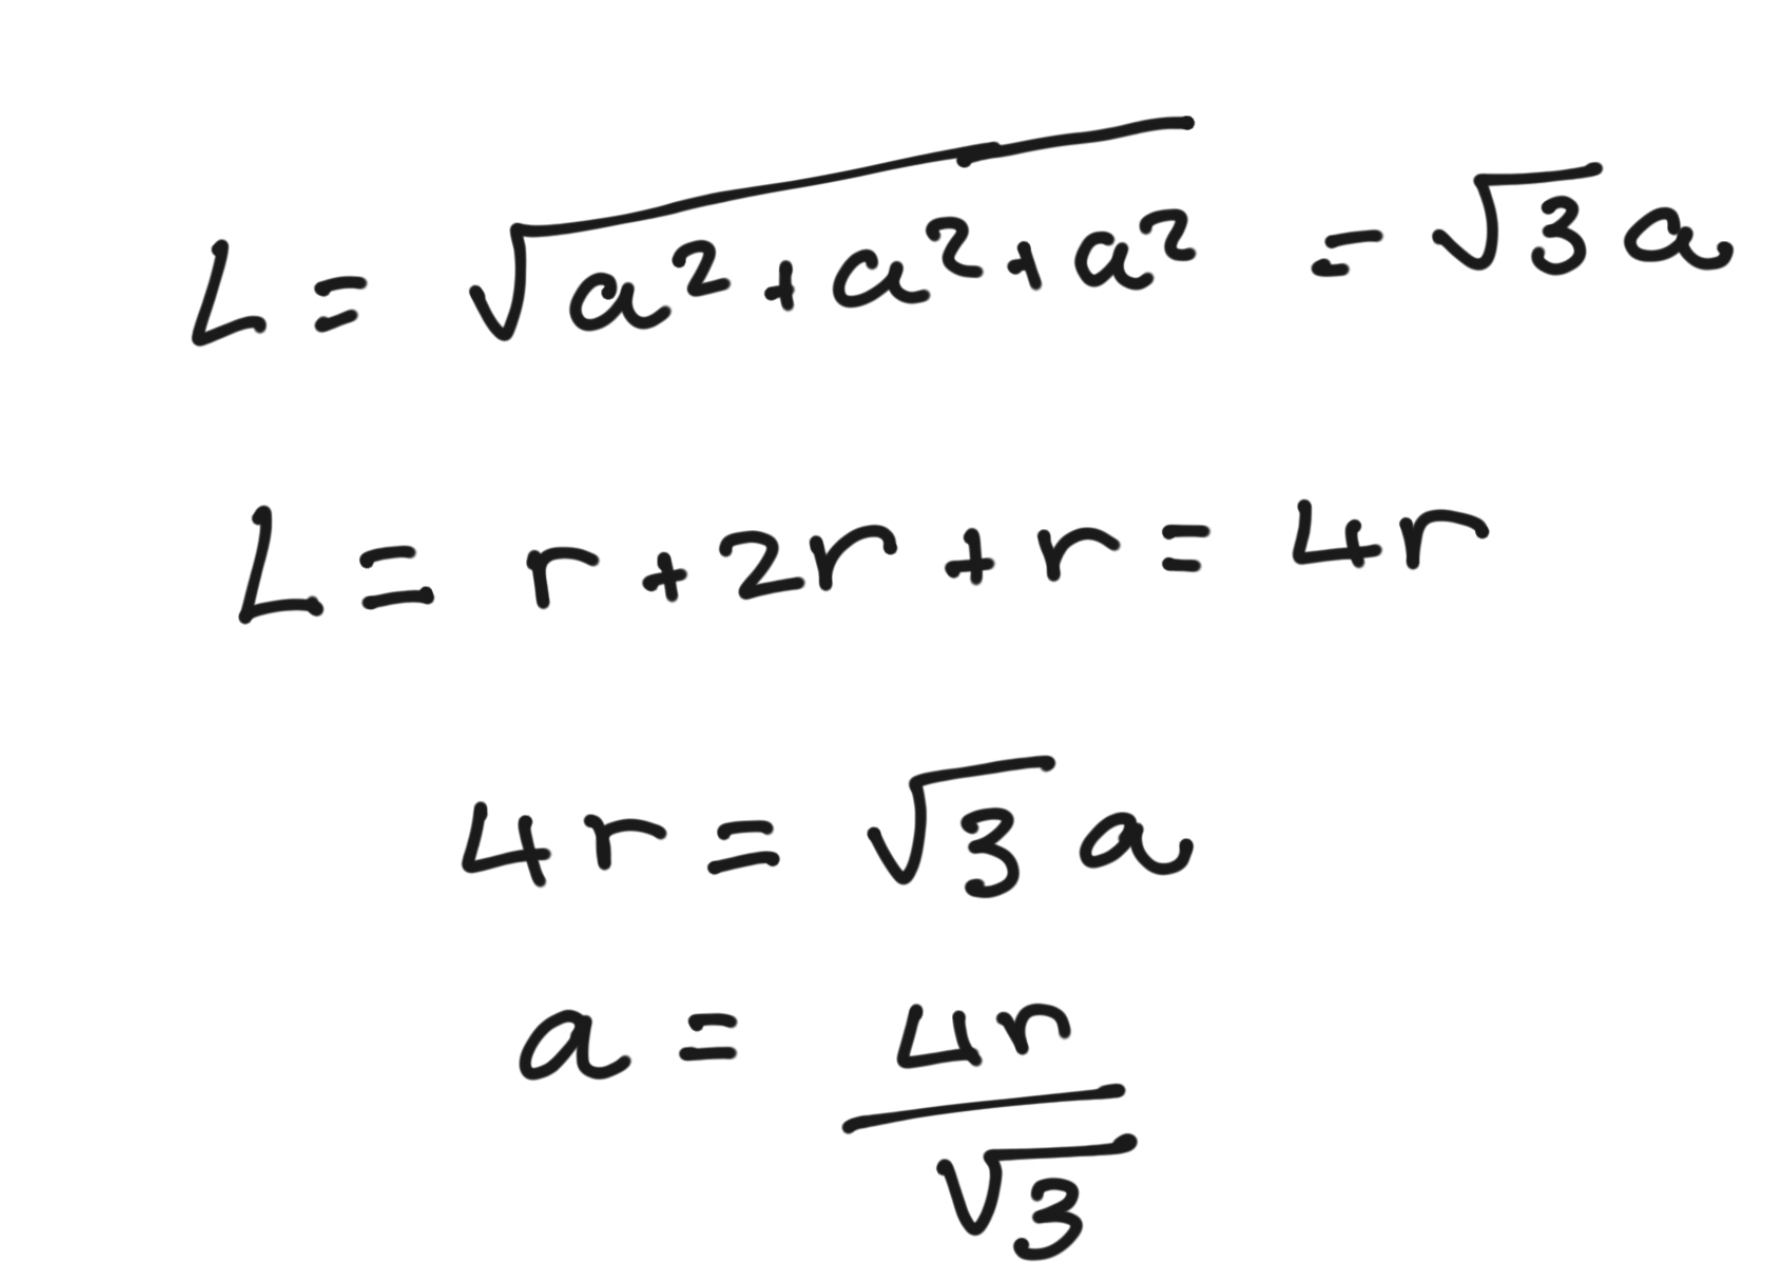 L = √(a² + a² + a²) = √3 a
L = r + 2r + r = 4r
4r = √3 a
a = 4r / √3